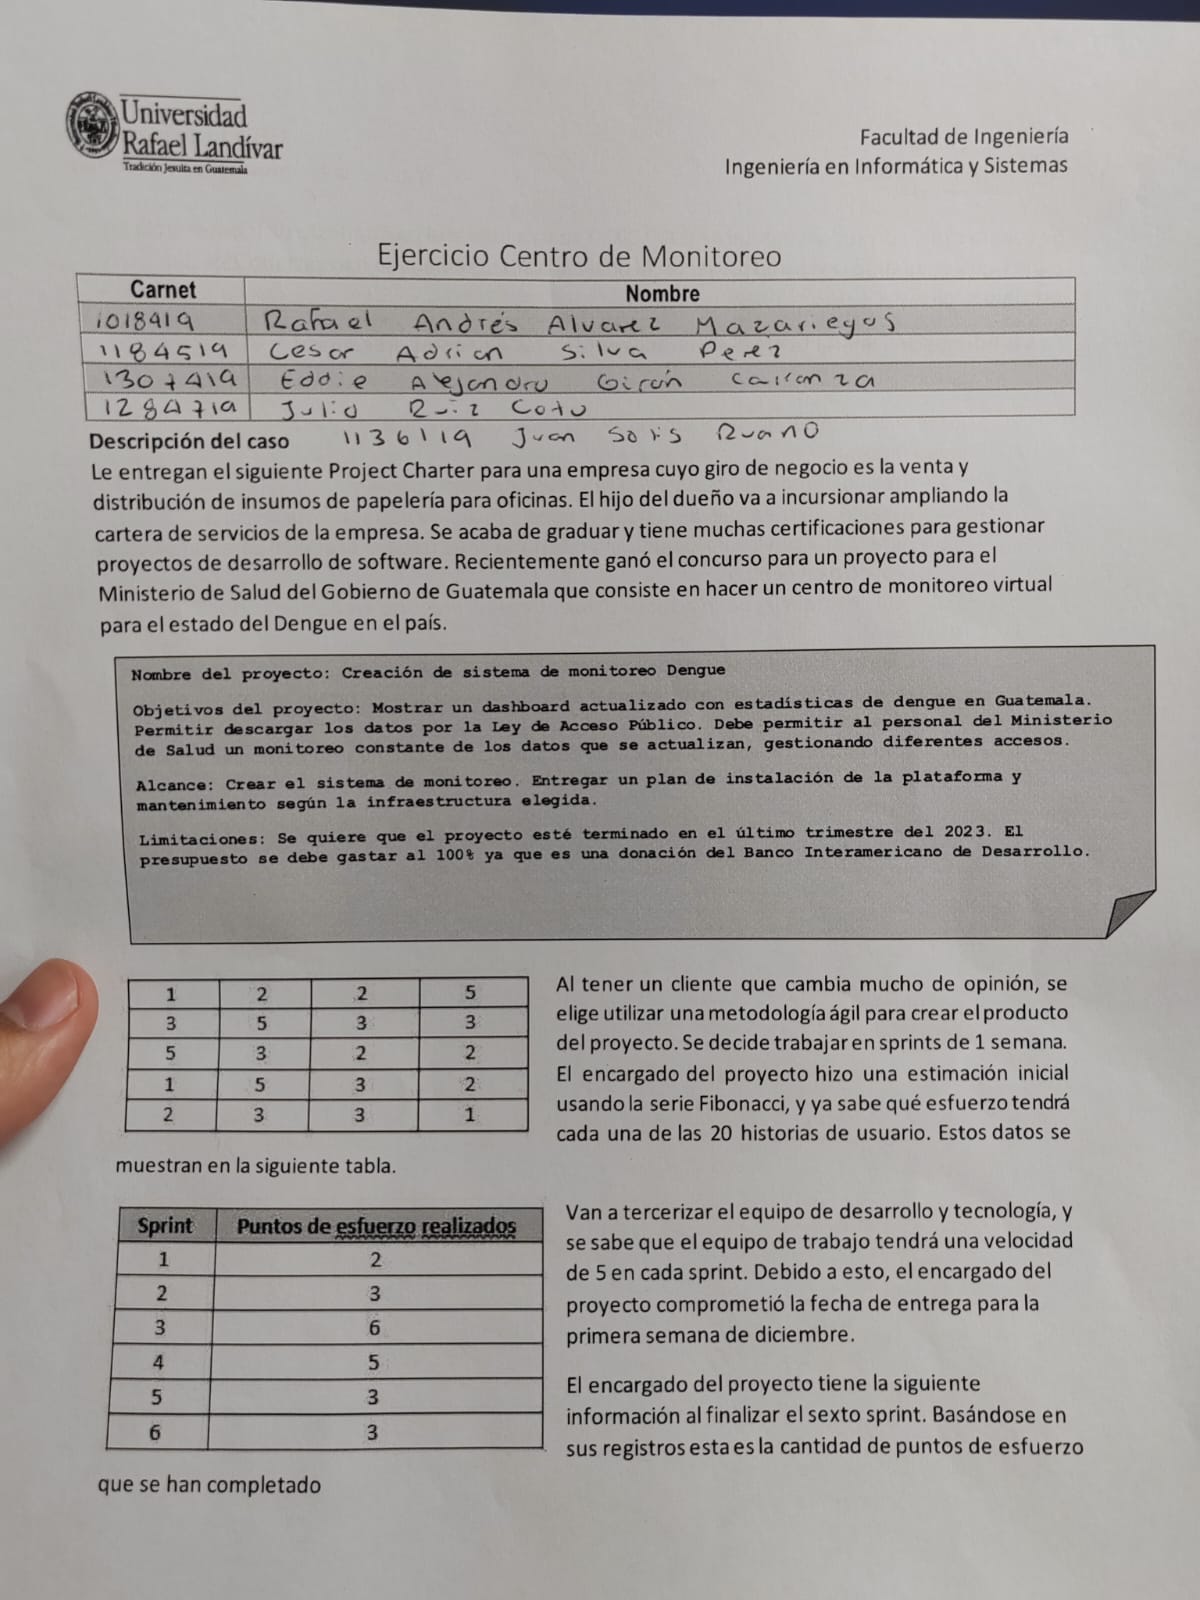 Universidad
Rafael Landívar
Tradición Jesuita en Guatemala
Facultad de Ingeniería
Ingeniería en Informática y Sistemas
Ejercicio Centro de Monitoreo
Carnet Nombre
1018919 Rafael Andrés Alvarez Mazariegos
1184519 Cesar Adrian Silva Perez
1307419 Eddie Alejandro Girón Carranza
1284719 Julio Ruiz Coto
Descripción del caso 1136119 Juan Solis Ruano
Le entregan el siguiente Project Charter para una empresa cuyo giro de negocio es la venta y
distribución de insumos de papelería para oficinas. El hijo del dueño va a incursionar ampliando la
cartera de servicios de la empresa. Se acaba de graduar y tiene muchas certificaciones para gestionar
proyectos de desarrollo de software. Recientemente ganó el concurso para un proyecto para el
Ministerio de Salud del Gobierno de Guatemala que consiste en hacer un centro de monitoreo virtual
para el estado del Dengue en el país.
Nombre del proyecto: Creación de sistema de monitoreo Dengue
Objetivos del proyecto: Mostrar un dashboard actualizado con estadísticas de dengue en Guatemala.
Permitir descargar los datos por la Ley de Acceso Público. Debe permitir al personal del Ministerio
de Salud un monitoreo constante de los datos que se actualizan, gestionando diferentes accesos.
Alcance: Crear el sistema de monitoreo. Entregar un plan de instalación de la plataforma y
mantenimiento según la infraestructura elegida.
Limitaciones: Se quiere que el proyecto esté terminado en el último trimestre del 2023. El
presupuesto se debe gastar al 100% ya que es una donación del Banco Interamericano de Desarrollo.
1 2 2 5
3 5 3 3
5 3 2 2
1 5 3 2
2 3 3 1
Al tener un cliente que cambia mucho de opinión, se
elige utilizar una metodología ágil para crear el producto
del proyecto. Se decide trabajar en sprints de 1 semana.
El encargado del proyecto hizo una estimación inicial
usando la serie Fibonacci, y ya sabe qué esfuerzo tendrá
cada una de las 20 historias de usuario. Estos datos se
muestran en la siguiente tabla.
Sprint Puntos de esfuerzo realizados
1 2
2 3
3 6
4 5
5 3
6 3
Van a tercerizar el equipo de desarrollo y tecnología, y
se sabe que el equipo de trabajo tendrá una velocidad
de 5 en cada sprint. Debido a esto, el encargado del
proyecto comprometió la fecha de entrega para la
primera semana de diciembre.
El encargado del proyecto tiene la siguiente
información al finalizar el sexto sprint. Basándose en
sus registros esta es la cantidad de puntos de esfuerzo
que se han completado